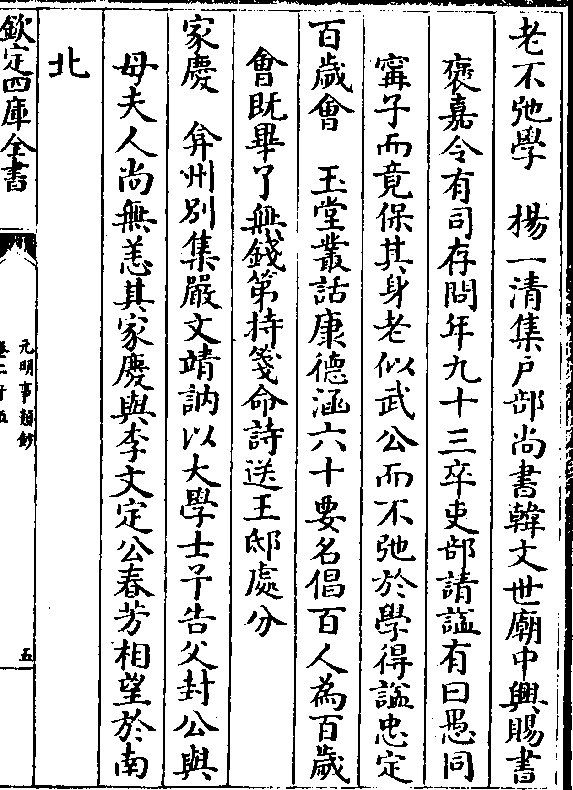 老不弛學　楊一清集户部尚書韓文世廟中興賜書
褒嘉令有司存問年九十三卒吏部請諡有曰愚同
甯子而竟保其身老似武公而不弛於學得諡忠定
百歲會　玉堂叢話康德涵六十要名倡百人為百歲
會既畢了無錢第持箋命詩送王邸處分
家慶　弇州別集嚴文靖訥以大學士予告父封公與
母夫人尚無恙其家慶與李文定公春芳相望於南
北
欽定四庫全書
元明事類鈔
卷二十五
五